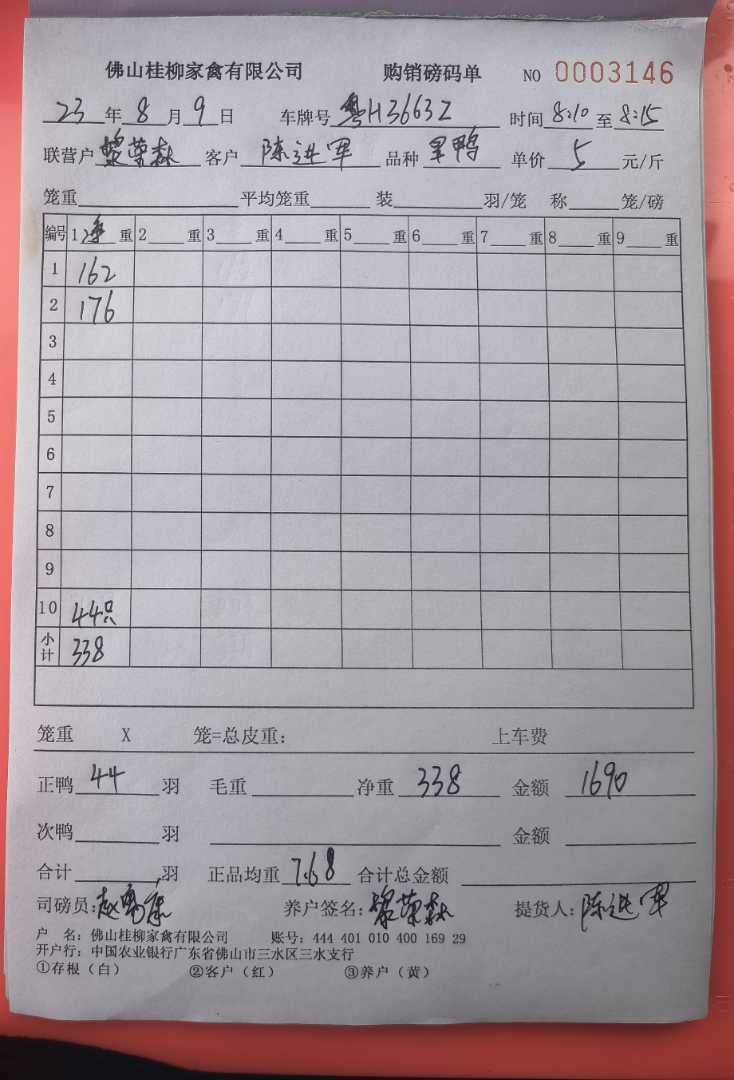 佛山桂柳家禽有限公司 购销磅码单 NO 0003146
23年8月9日 车牌号 粤H3663Z 时间 8:10 至 8:15
联营户 黎荣森 客户 陈进军 品种 单价 5 元/斤
笼重 平均笼重 装 羽/笼 称 笼/磅
编号 1 净 重 2 重 3 重 4 重 5 重 6 重 7 重 8 重 9 重
1 162
2 176
3
4
5
6
7
8
9
10 44只
小计 338
笼重 X 笼=总皮重: 上车费
正鸭 44 羽 毛重 净重 338 金额 1690
次鸭 羽 金额
合计 羽 正品均重 7.68 合计总金额
司磅员: 养户签名: 黎荣森 提货人: 陈进军
户 名: 佛山桂柳家禽有限公司 账号: 444 401 010 400 169 29
开户行: 中国农业银行广东省佛山市三水区三水支行
①存根(白) ②客户(红) ③养户(黄)